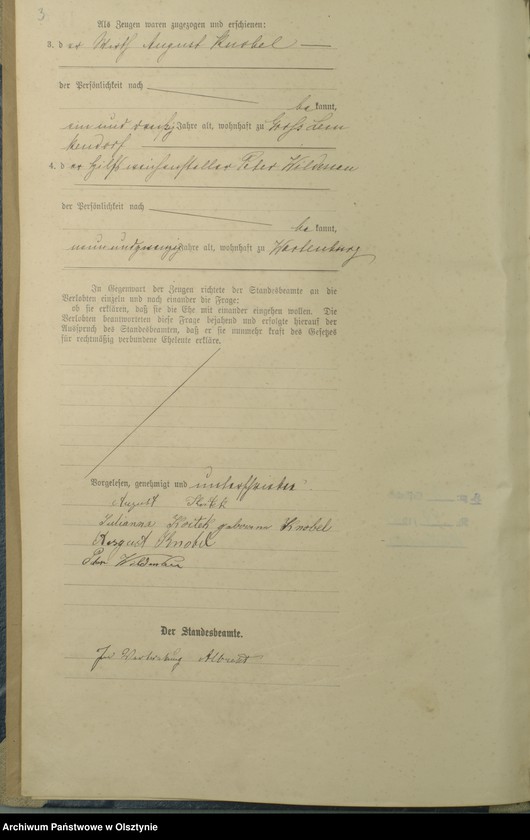 3
Als Zeugen waren zugezogen und erschienen:
3. der Wirth August Knobel
der Persönlichkeit nach
be kannt,
ein und Jahre alt, wohnhaft zu Gross Lem
kendorf
4. der Hilfsweichensteller Peter
der Persönlichkeit nach
be kannt,
neunundzwanzig Jahre alt, wohnhaft zu Wartenburg
In Gegenwart der Zeugen richtete der Standesbeamte an die
Verlobten einzeln und nach einander die Frage:
ob sie erklären, daß sie die Ehe mit einander eingehen wollen. Die
Verlobten beantworteten diese Frage bejahend und erfolgte hierauf der
Ausspruch des Standesbeamten, daß er sie nunmehr kraft des Gesetzes
für rechtmäßig verbundene Eheleute erkläre.
Vorgelesen, genehmigt und unterschrieben
August
Julianna geborene Knobel
August Knobel
Peter
Der Standesbeamte.
In Vertretung
Archiwum Państwowe w Olsztynie